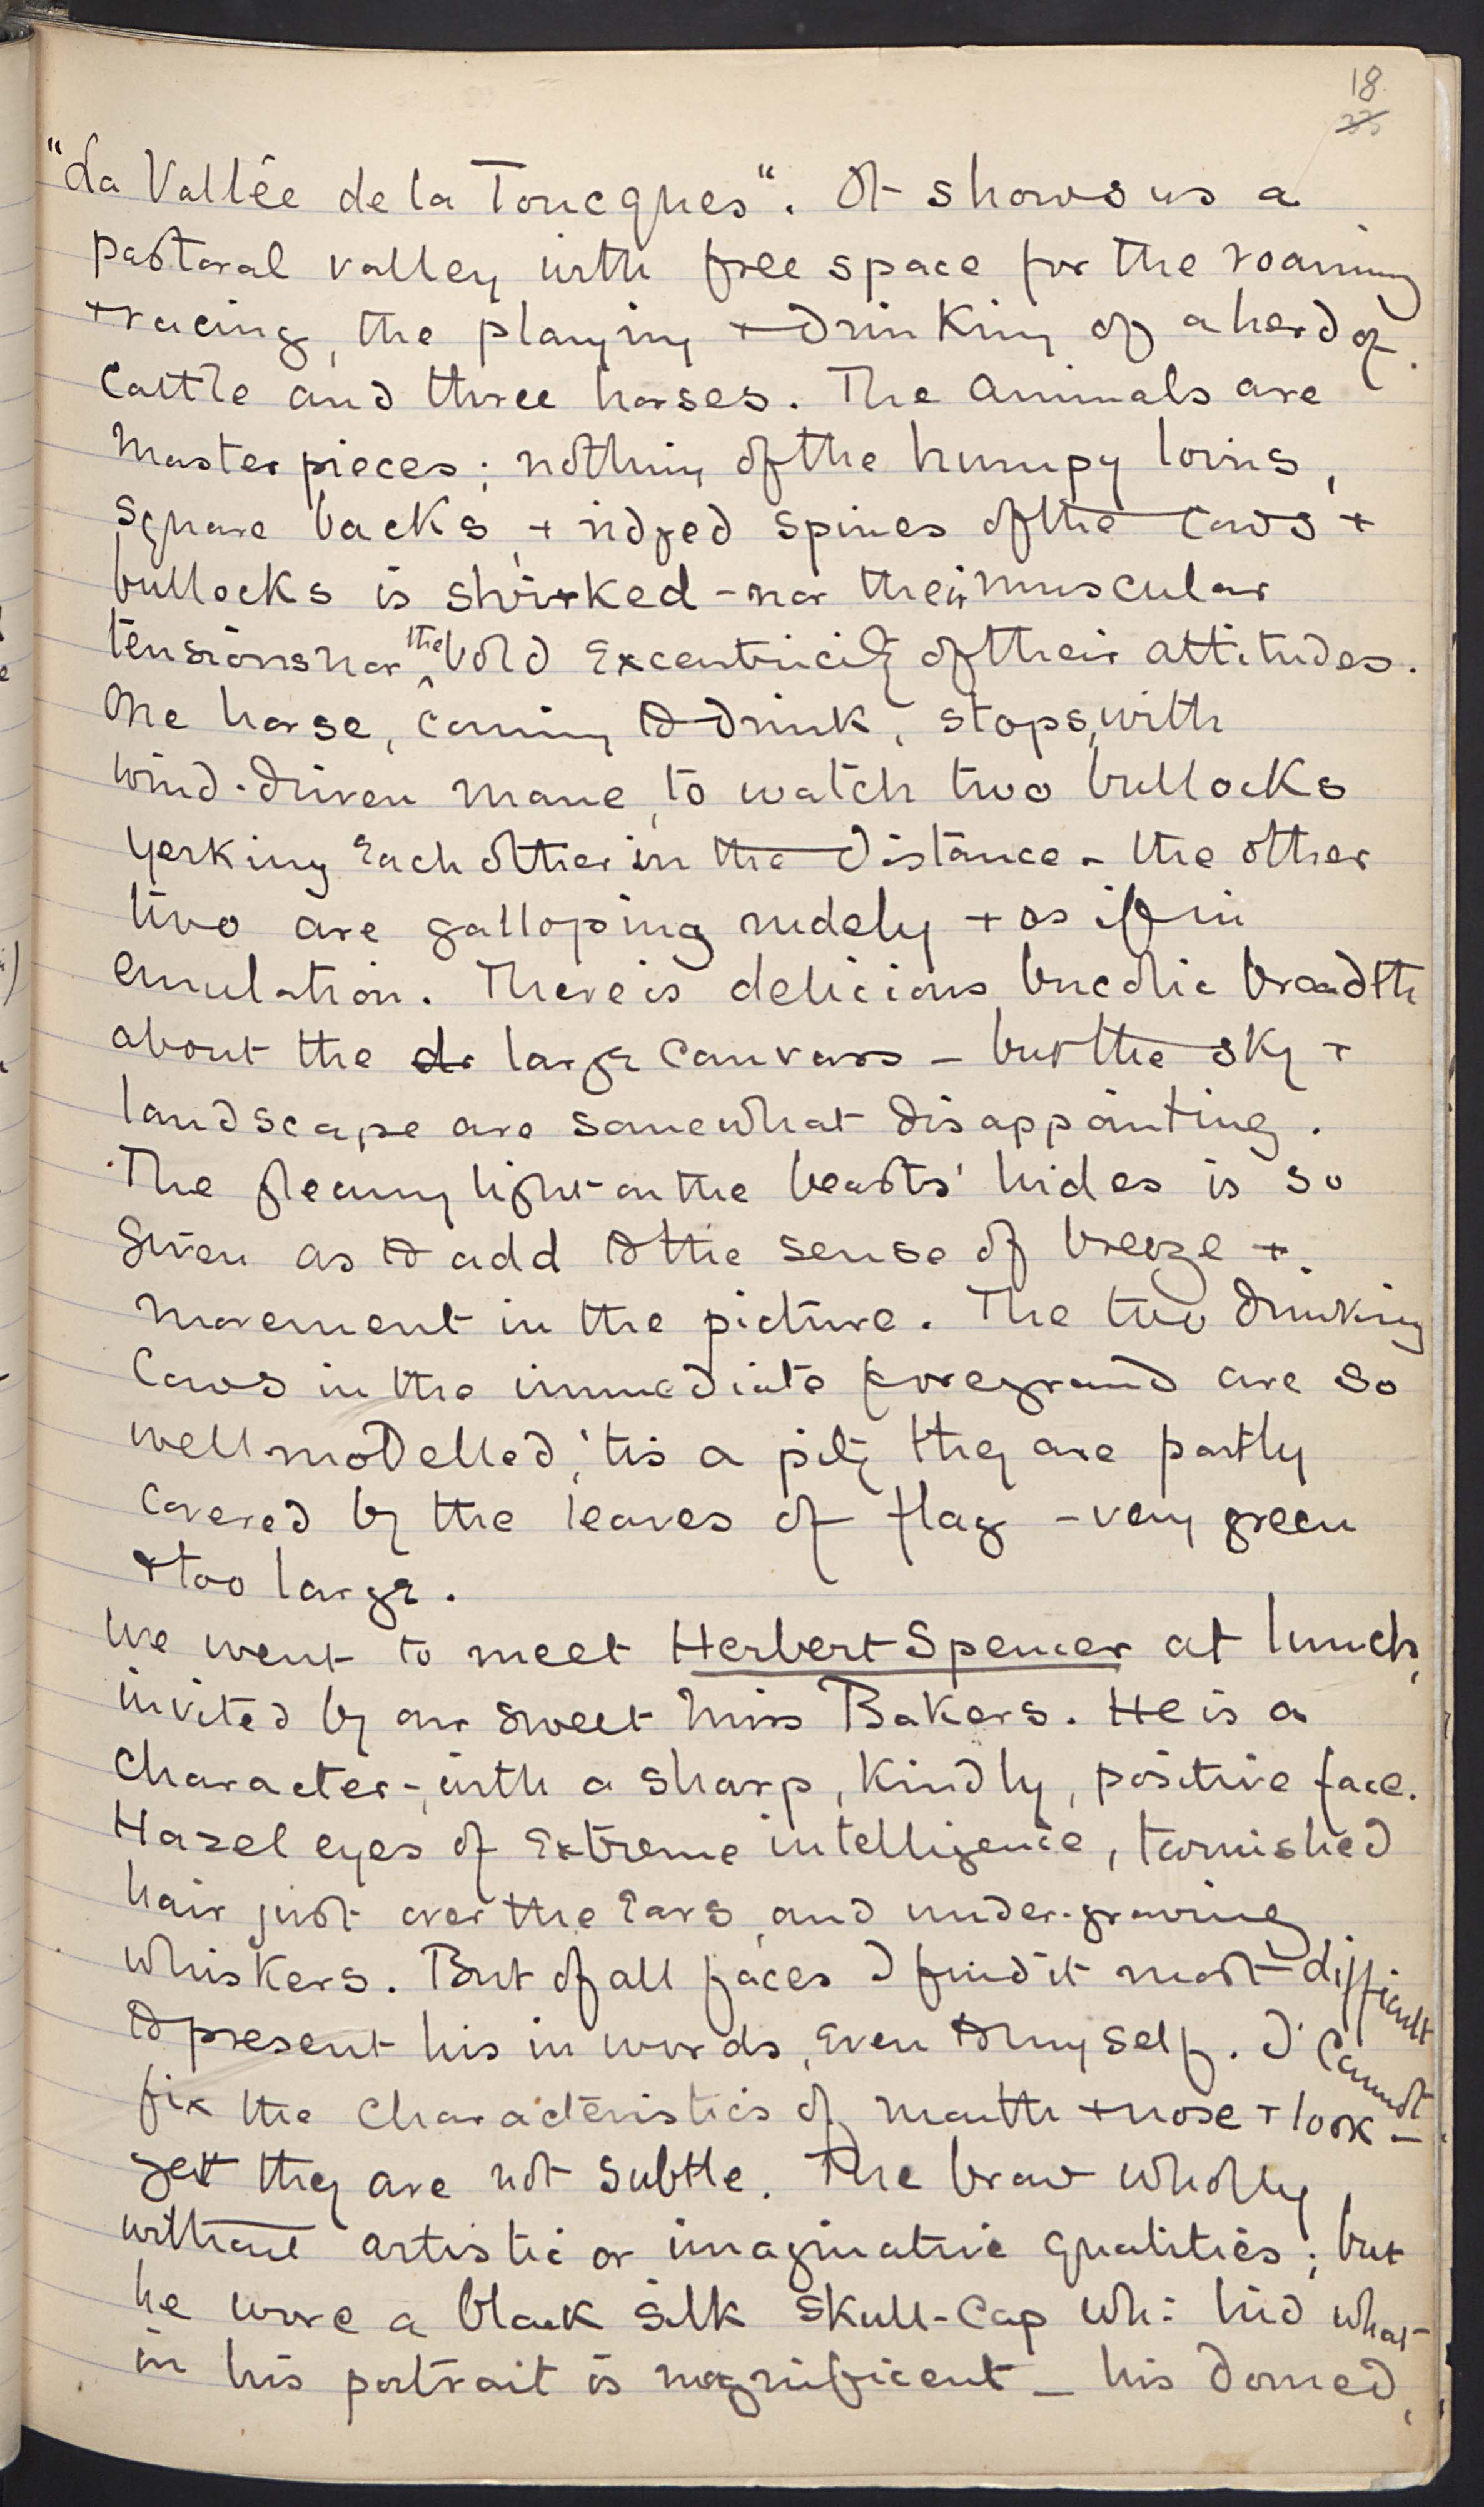 18
33
"La Vallée de la Toucques". It shows us a
pastoral valley with free space for the roaming
+ racing, the playing + drinking of a herd of
cattle and three horses. The animals are
masterpieces; nothing of the humpy loins,
square backs, + ridged spines of the cows +
bullocks is shirked - nor their muscular
tensions nor the bold excentricity of their attitudes.
One horse, coming to drink, stops, with
wind-driven mane, to watch two bullocks
yerking each other in the distance - the other
two are galloping nudely + as if in
emulation. There is delicious bucolic breadth
about the de large canvass - but the sky +
landscape are somewhat disappointing.
The gleamy light on the beasts' hides is so
given as to add to the sense of breeze +
movement in the picture. The two drinking
cows in the immediate foreground are so
well modelled, 'tis a pity they are partly
covered by the leaves of flag - very green
+ too large.
We went to meet Herbert Spencer at lunch,
invited by our sweet Miss Bakers. He is a
character, - with a sharp, kindly, positive face.
Hazel eyes of extreme intelligence, tarnished
hair just over the ears, and under-growing
whiskers. But of all faces I find it most difficult
to present his in words, even to myself. I cannot
fix the characteristics of mouth + nose + look -
yet they are not subtle. The brow wholly
without artistic or imaginative qualities; but
he wore a black silk skull-cap wh: hid what
in his portrait is magnificent - his domed,